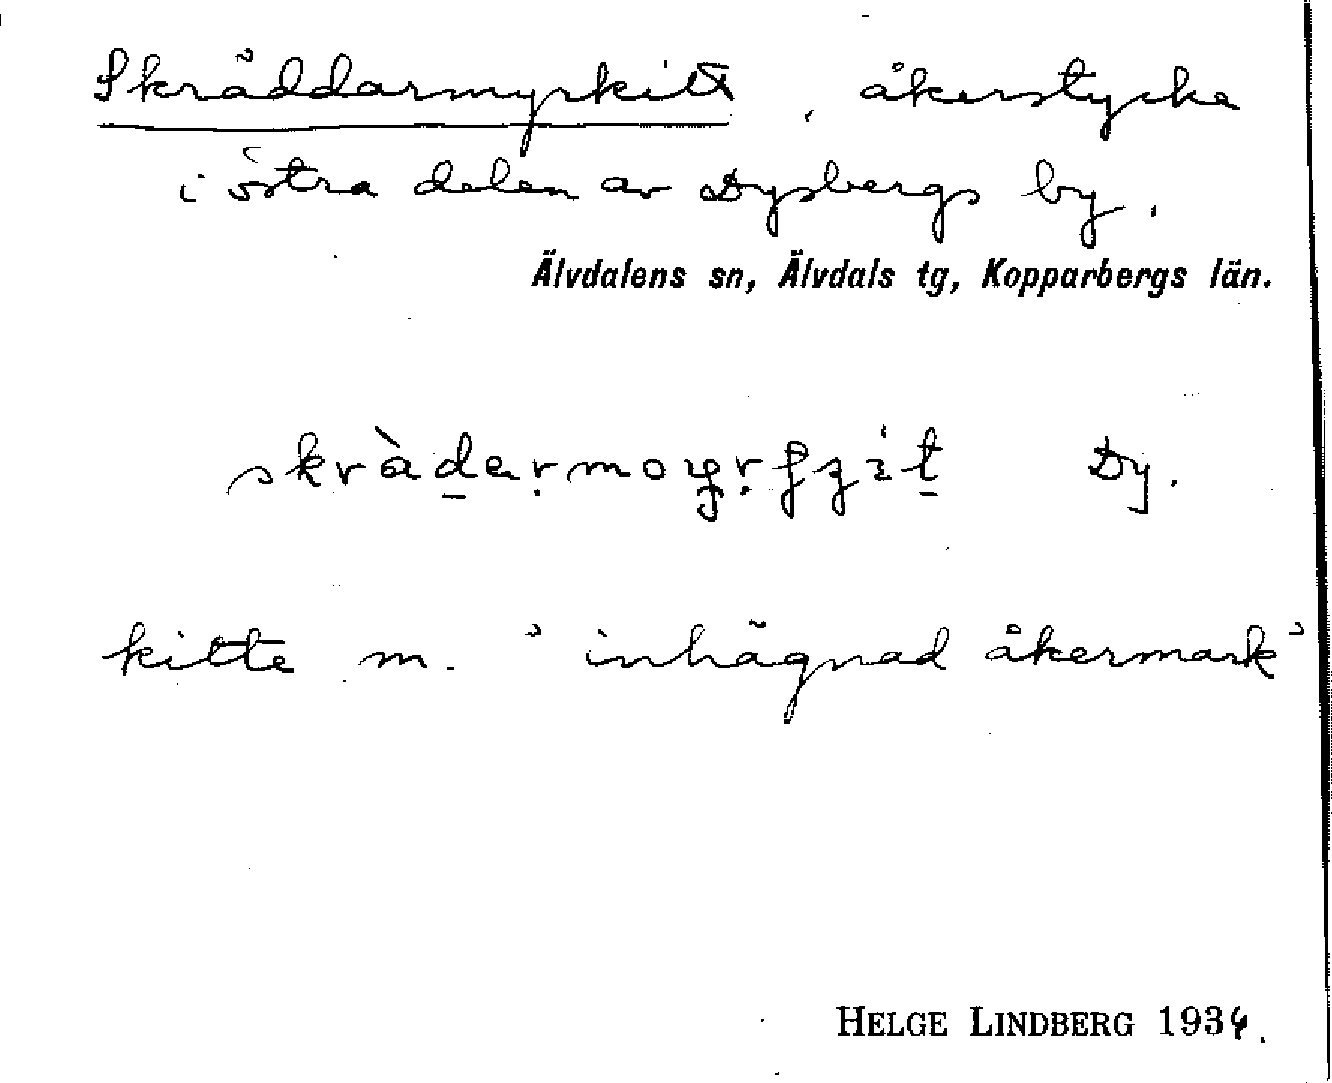 Skräddarmyrkitt, åkerstycke
i östra delen av Dysbergs by.
Älvdalens sn, Älvdals tg, Kopparbergs län.
Dy.
kitte m. "inhägnad åkermark"
HELGE LINDBERG 1936.